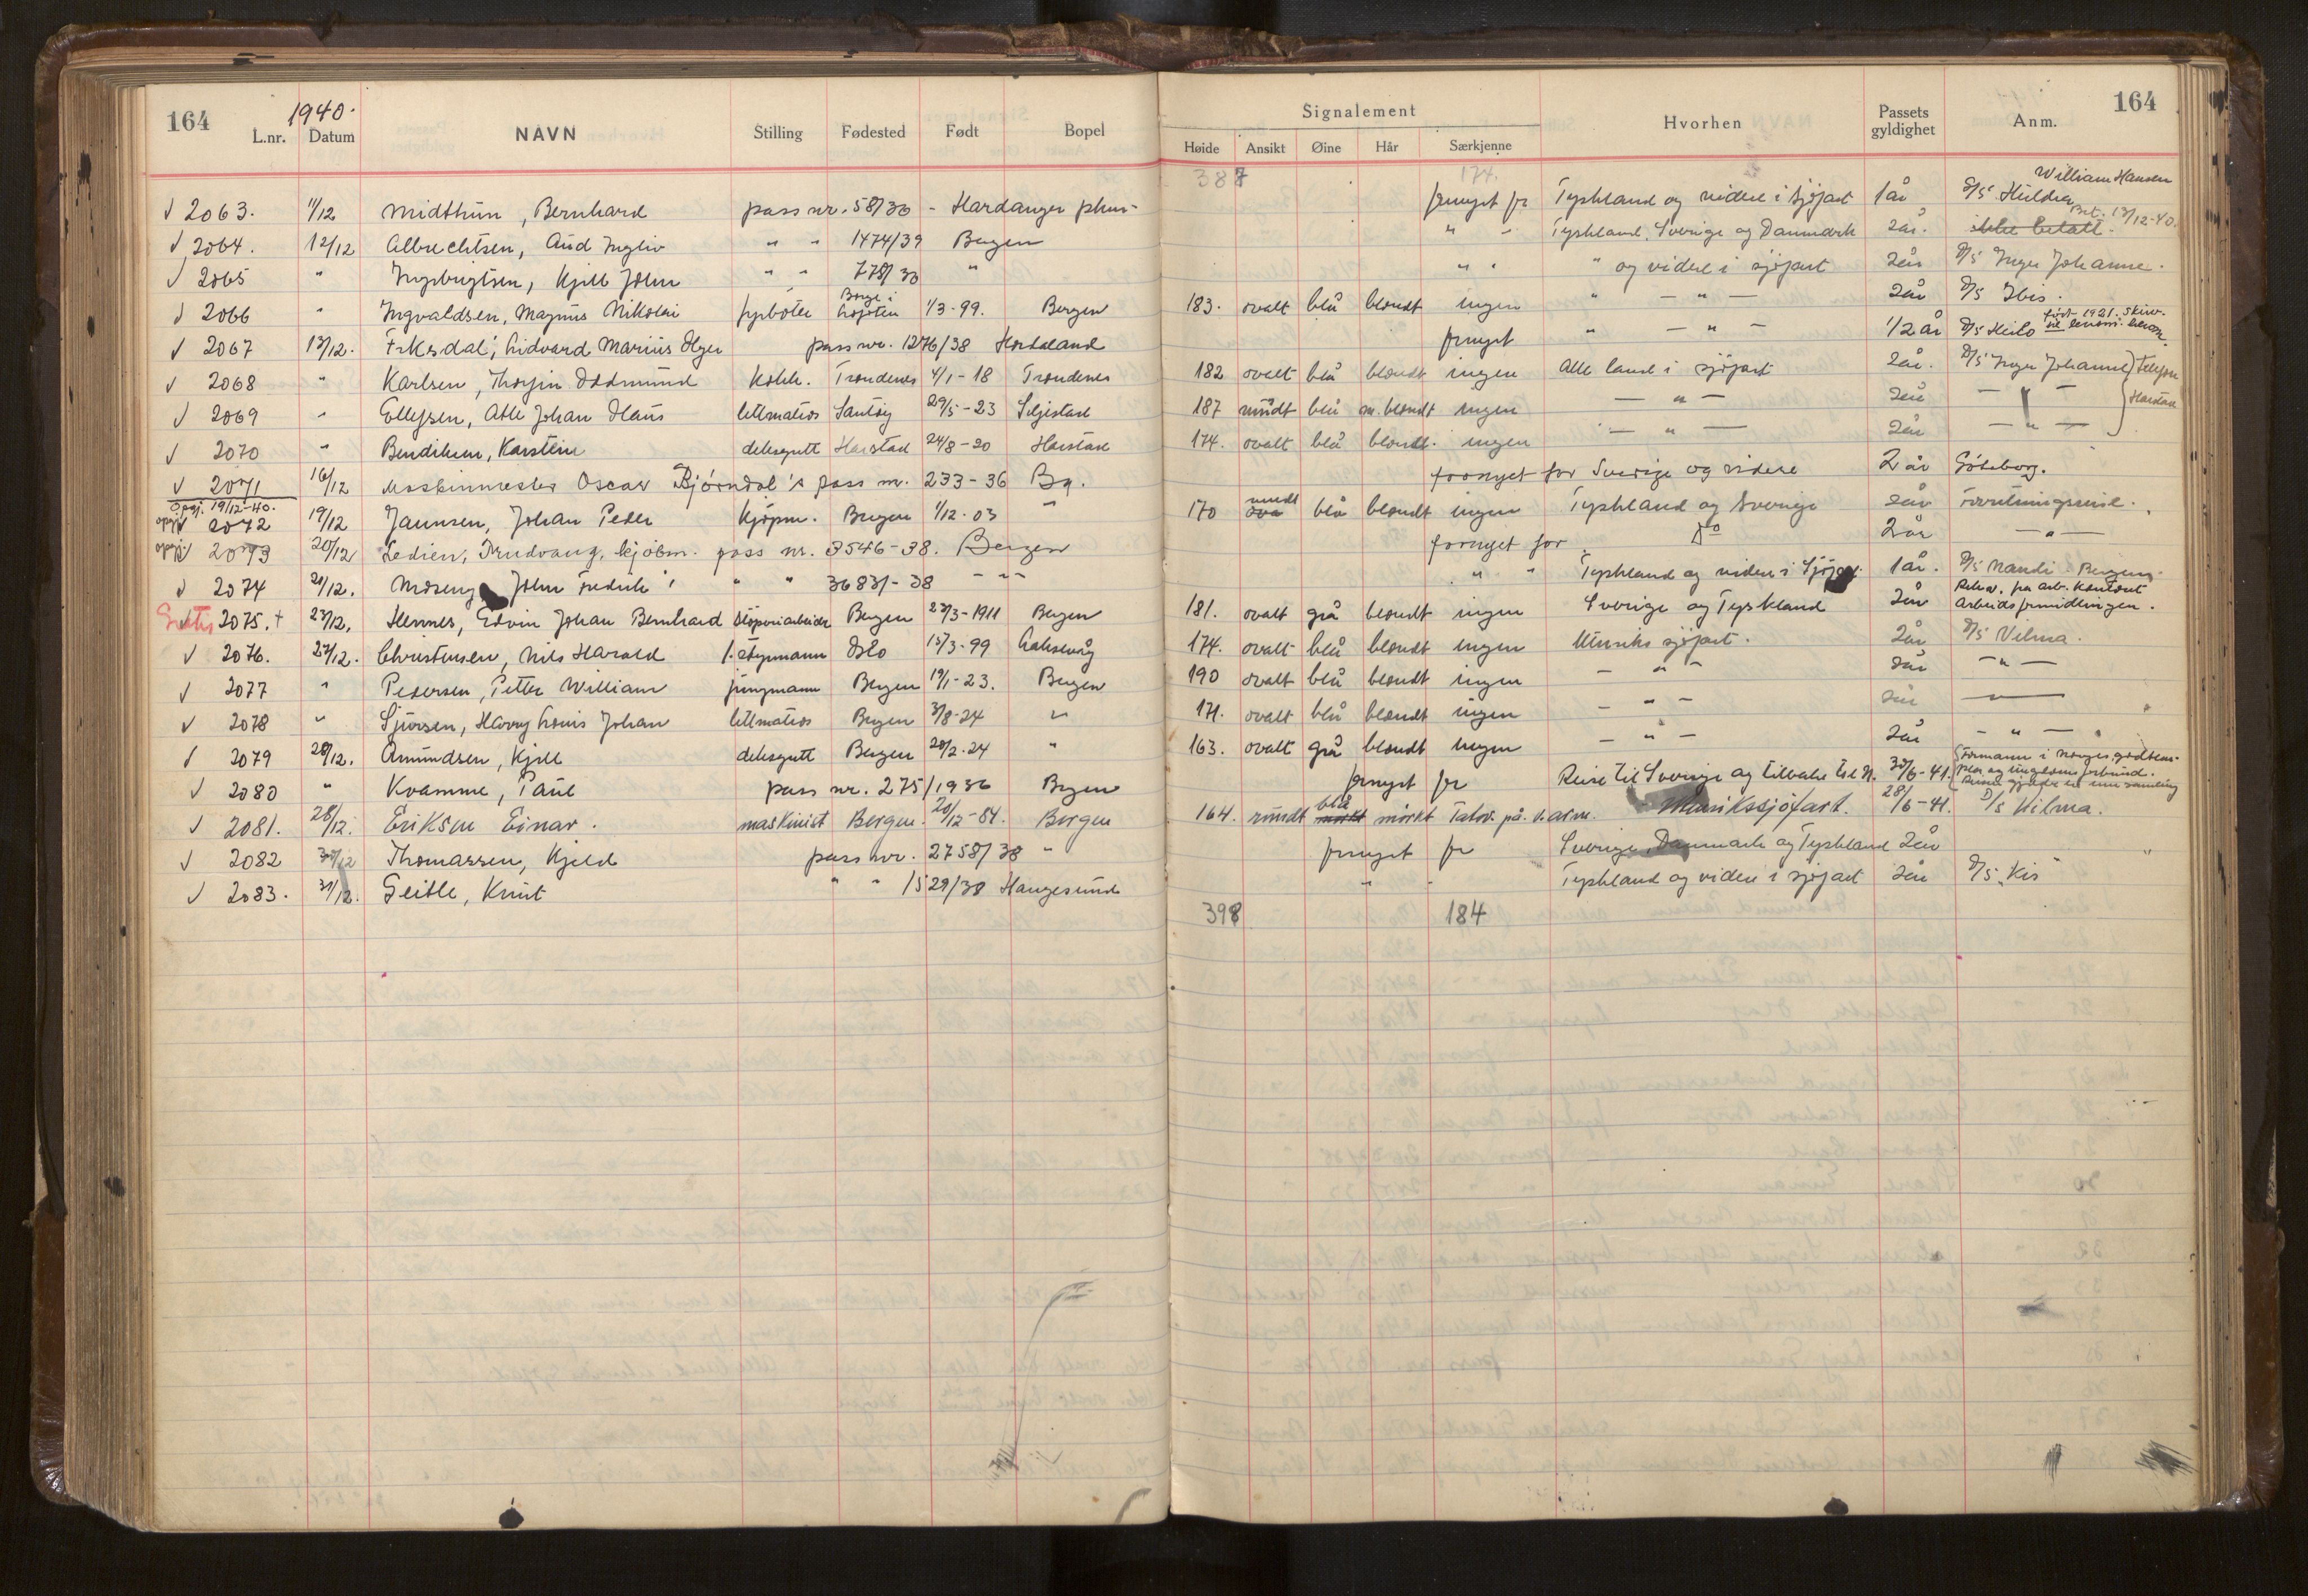 164 1940. L.nr. Datum NAVN Stilling Fødested Født Bopel
Signalement Hvorhen Passets gyldighet Anm. 164
Høide Ansikt Øine Hår Særkjenne
387 174. William Hansen
√ 2063. 11/12 Midthun, Bernhard pass nr. 58/36 - Hardanger fornyet for Tyskland og videre i sjøfart 1 år D/S Huldra
√ 2064. 12/12 Albrechtsen, Aud Ingliv " " 1474/39 Bergen " " Tyskland, Sverige og Danmark 2 år. ikke betalt. Bet. 13/12-40.
√ 2065 " Ingebrigtsen, Kjell John " " 778/38 " " " " og videre i sjøfart 2 år D/S Inger Johanne.
√ 2066 " Ingvaldsen, Magnus Nikolai fyrbøter Borge i Lofoten 1/3-99. Bergen 183. ovalt blå blondt ingen " — " — 2 år D/S Ibis.
√ 2067 13/12. Eikesdal, Lidvard Marius Olger pass nr. 1276/38 Hordaland fornyet " — " — 1/2 år D/S Heilo født 1921.
√ 2068 " Karlsen, Thorfin Oddmund kokk. Trondenes 4/1-18 Trondenes 182 ovalt blå blondt ingen Alle land i sjøfart 2 år. D/S Inger Johanne telefon
√ 2069 " Ellefsen, Atle Johan Hans lettmatros Santøy 29/5-23 Seljestad 187 rundt blå m. blondt ingen — " — 2 år — " — Harstad
√ 2070 " Bendiksen, Karstein dekksgutt Harstad 24/8-20 Harstad 174. ovalt blå blondt. ingen — " — 2 år — " —
√ 2071 16/12 Maskinmester Oscar Bjørndal's pass nr. 233-36 Bg. fornyet for Sverige og videre 2 år Göteborg.
opgj. 19/12-40.
opgj √ 2072 19/12 Jannsen, Johan Peder kjøpm. Bergen 1/12-03 " 170 rundt blå blondt ingen Tyskland og Sverige 2 år Forretningsreise.
opgj √ 2073 20/12 Ledien, Trudvang, kjøbm. pass nr. 3546-38. Bergen fornyet for Do 2 år — " —
√ 2074 21/12. Moseng John Fredrik's " " 3683/-38 — " — " " Tyskland og videre i sjøfart 1 år. D/S Nandi - Bergens
Gratis 2075. + 23/12. Hennes, Edvin Johan Bernhard støperiarbeider Bergen 23/3-1911 Bergen 181. ovalt grå blondt ingen Sverige og Tyskland 2 år Rekv. fra arb. kontoret Arbeidsformidlingen.
√ 2076. 27/12. Christensen, Nils Harald 1. styrmann Oslo 15/3-99 Laksevåg 174. ovalt blå blondt ingen Utenriks sjøfart. 2 år D/S Vilma.
√ 2077 " Pedersen, Petter William jungmann Bergen 19/1-23. Bergen 190 ovalt blå blondt ingen — " — 2 år — " —
√ 2078 " Sjursen, Harry Louis Johan lettmatros Bergen 3/8-24 " 171. ovalt blå blondt ingen — " — 2 år — " —
√ 2079 28/12. Amundsen, Kjell dekksgutt Bergen 20/2-24 " 163. ovalt grå blondt ingen — " — 2 år — " —
√ 2080 " Kvamme, Paul pass nr. 275/1936 Bergen fornyet for Reise til Sverige og tilbake til N. 30/6-41. Formann i Norges godtem-plar og ungdomsforbund.
√ 2081. 28/12. Eriksen Einar. maskinist Bergen. 20/12-84. Bergen 164. rundt mørkt blå mørkt Tatov. på v. arm. Utenrikssjøfart. 28/6-41. D/S Vilma.
√ 2082 30/12 Thomassen, Kjeld pass nr. 2758/38 " fornyet for Sverige, Danmark og Tyskland 2 år "
√ 2083. 31/12. Geitle, Knut " " 1529/38 Haugesund " - Tyskland og videre i sjøfart 2 år D/S "Kis"
398 184